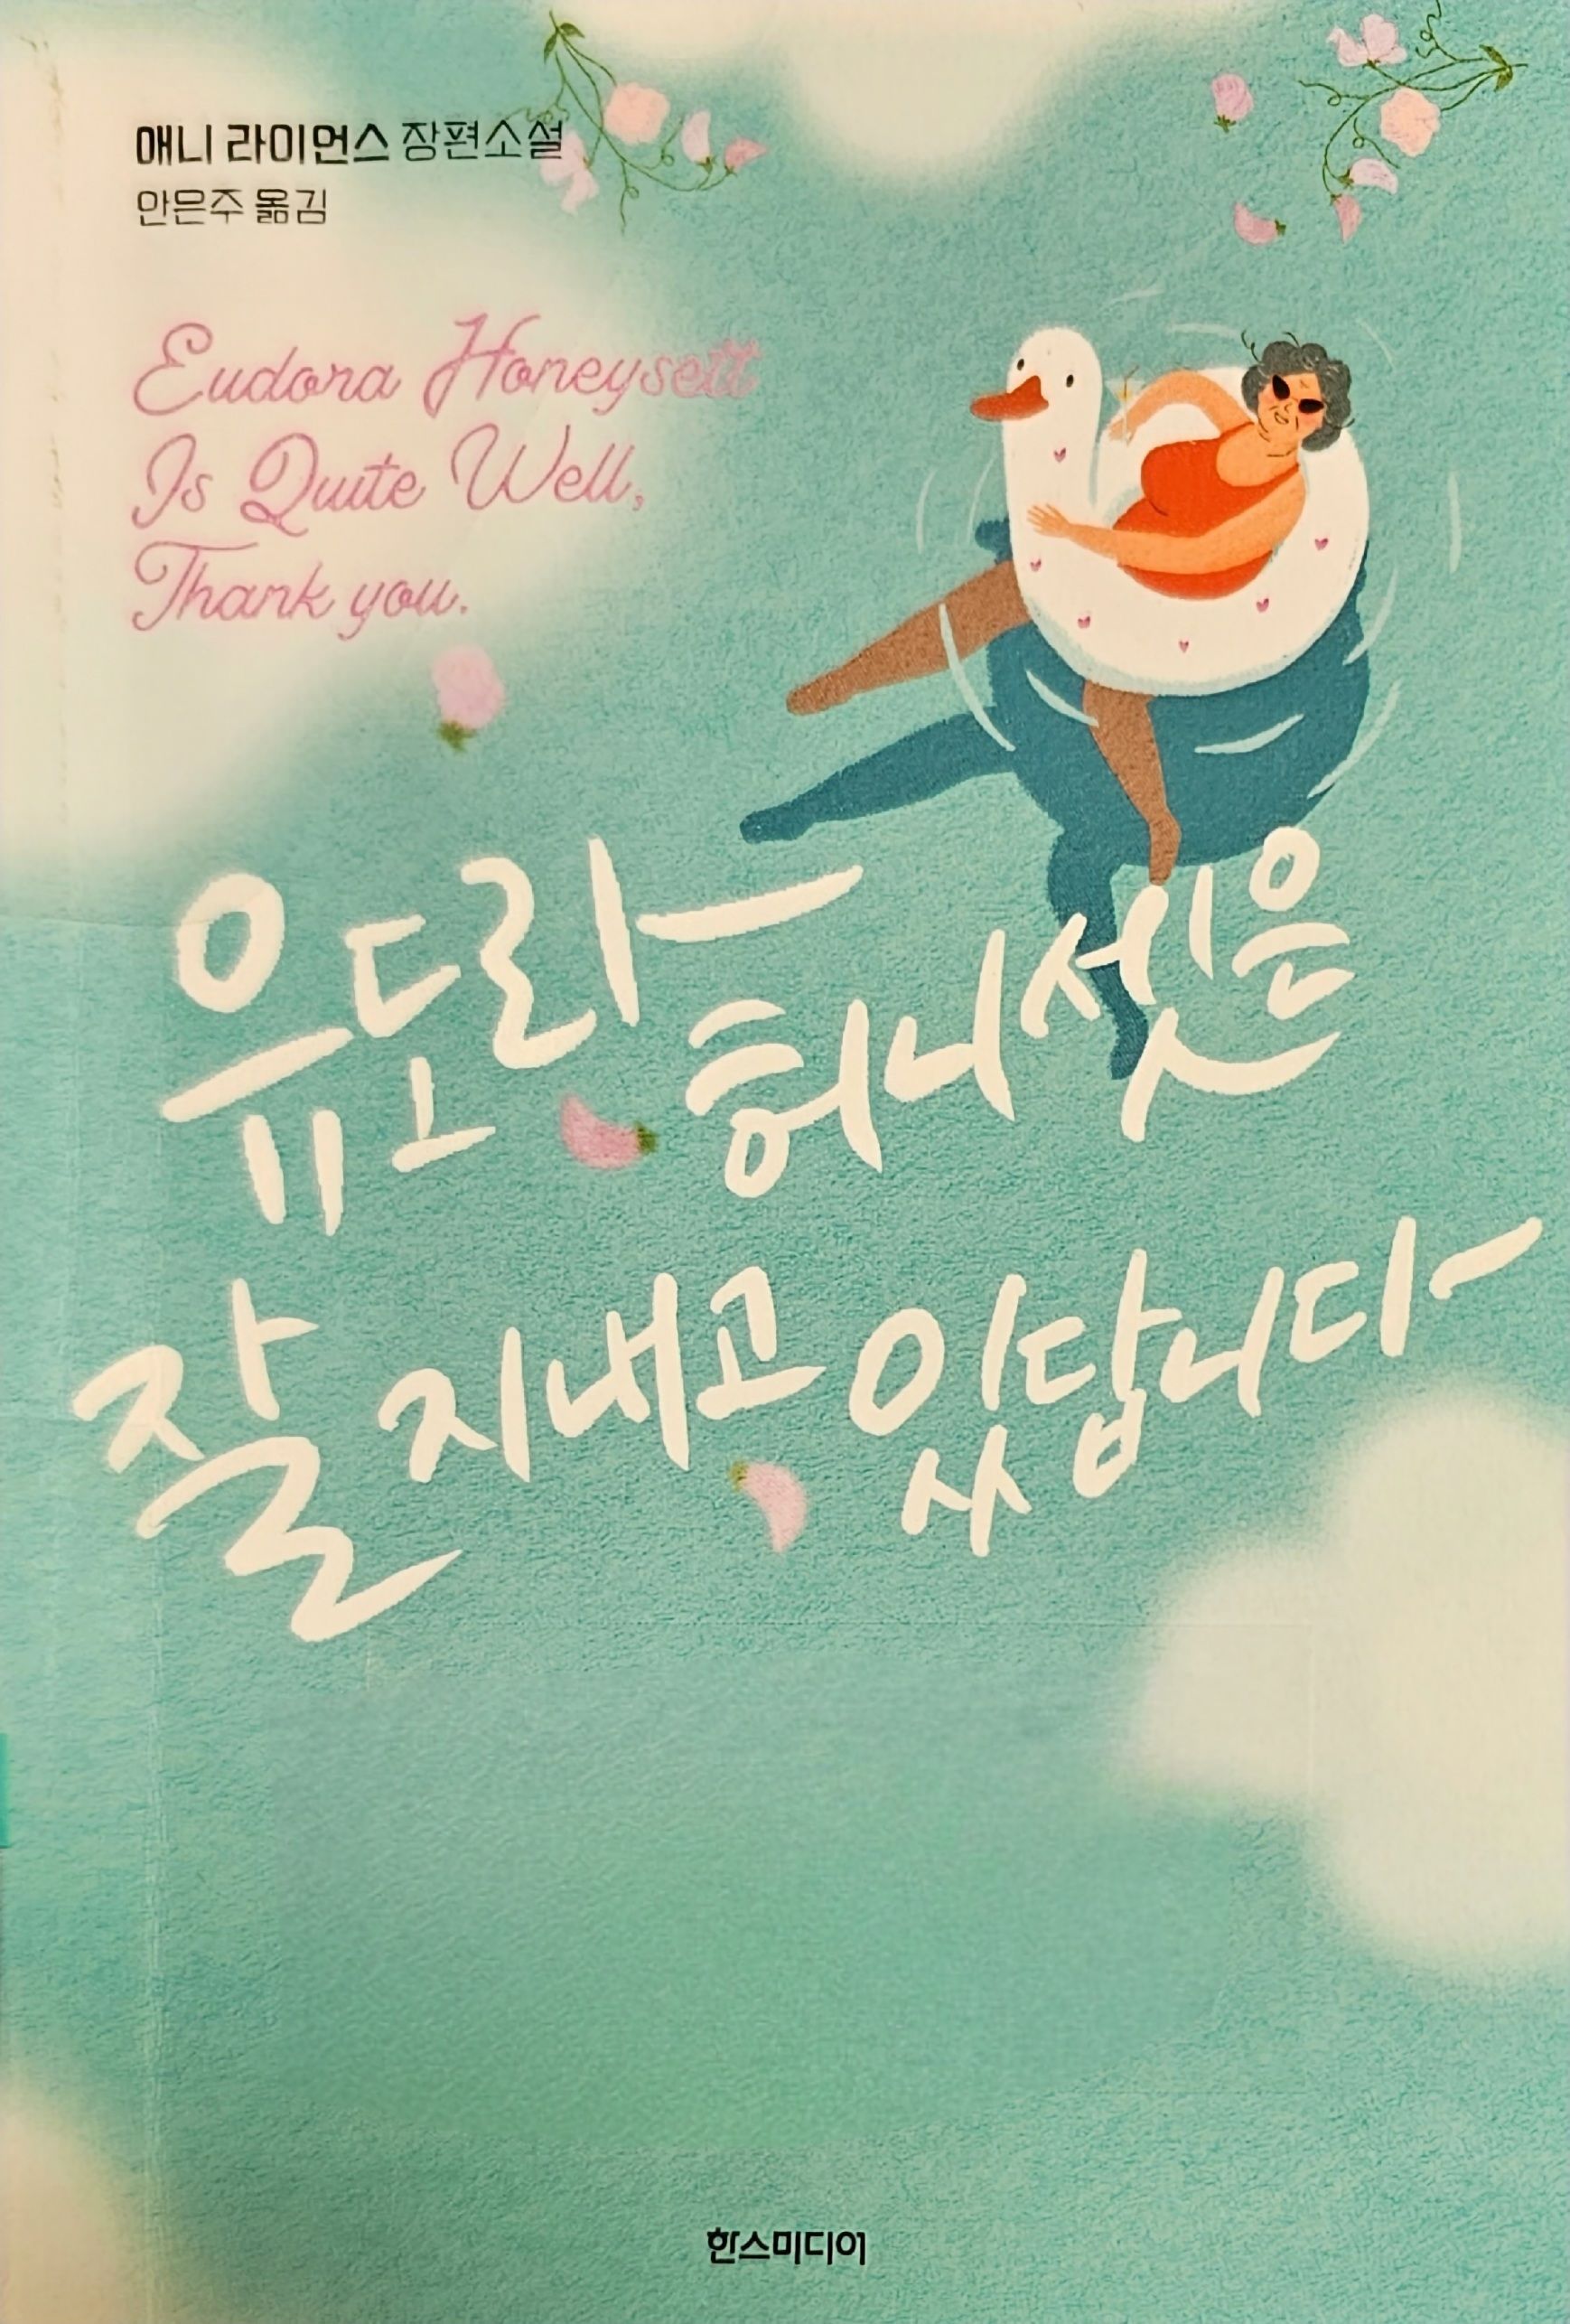 애니 라이언스 장편소설
안은주 옮김
Eudora Honeysett
Is Quite Well,
Thank you.
유도라 허니셋은
잘 지내고 있답니다
한스미디어